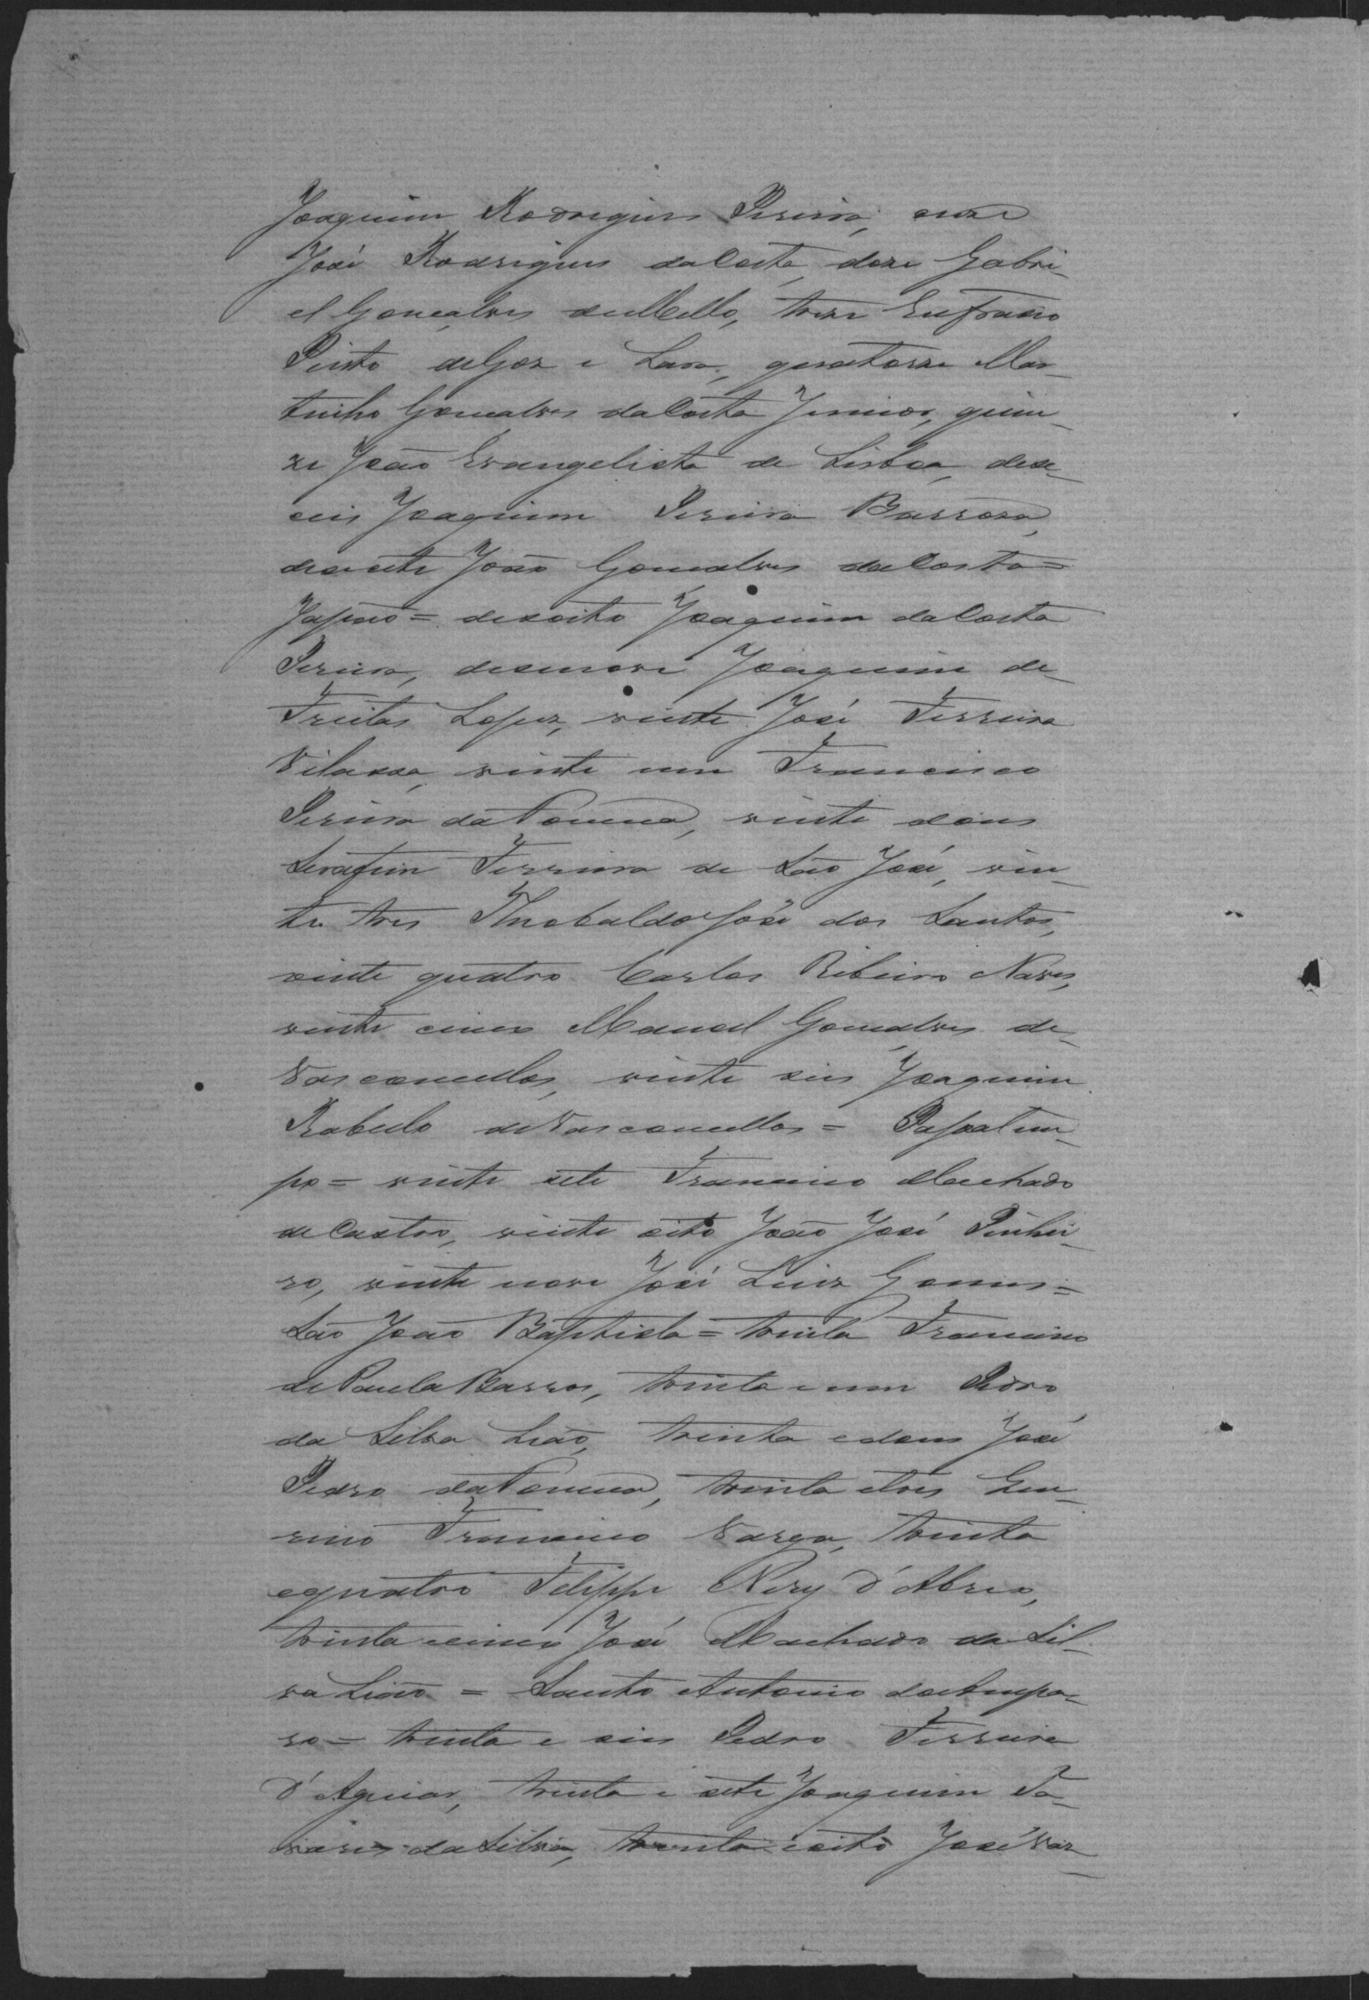 Joaquim Rodrigues Pereira, onze
José Rodrigues da Costa, doze Gabri-
el Gonçalves de Mello, treze Eufrasio
Pinto de Goz e Lara, quatorze Mar-
tinho Gonçalves da Costa Junior, quin-
ze João Evangelista de Lisboa, deze-
seis Joaquim Pereira Barroso,
desesete João Gonçalves da Costa =
Japão = desoito Joaquim da Costa
Pereira, desenove Joaquim de
Freitas Lopez, vinte José Ferreira
Vilassa, vinte um Francisco
Pereira da Fonseca, vinte dous
Serafim Ferreira de São José, vin-
te tres Theobaldo José dos Santos,
vinte quatro Carlos Ribeiro Naves,
vinte cinco Manoel Gonçalves de
Vasconcellos, vinte seis Joaquim
Rabello de Vasconcellos = Passatem-
po = vinte sete Francisco Machado
de Castro, vinte oito João José Pinhei-
ro, vinte nove José Luiz Gomes =
São João Baptista = trinta Francisco
de Paula Barros, trinta e um Pedro
da Silva Leão, trinta e dous José
Pedro da Fonseca, trinta e tres
Francisco Vargas, trinta
e quatro Felippe Nery d'Abreo,
trinta e cinco José Machado da Sil-
va Leão = Santo Antonio do Ampa-
ro = trinta e seis Pedro Ferreira
d'Aguiar, trinta e sete Joaquim Ta-
vares da Silva, trinta e oito José Vaz